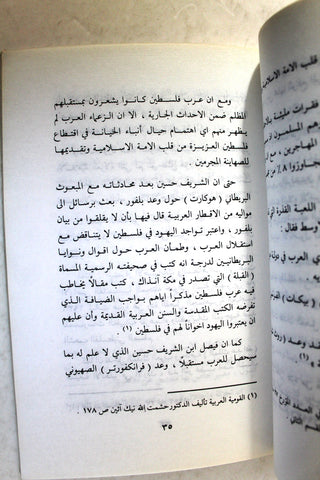 ومع ان عرب فلسطين كانوا يشعرون بمستقبلهم
المظلم ضمن الاحداث الجارية ، الا ان الزعماء العرب لم
يظهر منهم اي اهتمام حيال أنباء الخيانة في اقتطاع
فلسطين العزيزة من قلب الامة الاسلامية وتقديمها
للصهاينة المجرمين .
حتى ان الشريف حسين بعد محادثاته مع المبعوث
البريطاني (هوكارت) حول وعد بلفور ، بعث برسائل الى
مواليه من الاقطار العربية قال فيها بأن لا يقلقوا من بيان
بلفور ، واعتبر تواجد اليهود في فلسطين لا يتناقض مع
استقلال العرب ، وطمأن العرب حول اقوال ونوايا
البريطانيين لدرجة انه كتب في صحيفته الرسمية المسماة
(القبلة) التي تصدر في مكة آنذاك ، كتب مقالاً يخاطب
فيه عرب فلسطين مذكراً اياهم بواجب الضيافة الذي
تفرضه الكتب المقدسة والسنن العربية القديمة وأن عليهم
ان يعتبروا اليهود اخواناً لهم في فلسطين (١)
كما ان فيصل ابن الشريف حسين الذي لا علم له بما
سيحصل للعرب مستقبلاً ، وعد (فرانكفورتر) الصهيوني
(١) القومية العربية تأليف الدكتور حشمت الله نيك آئين ص ١٧٨ .
٣٥
قلب الامة الاسلام
فقرات
المهاجرين ،